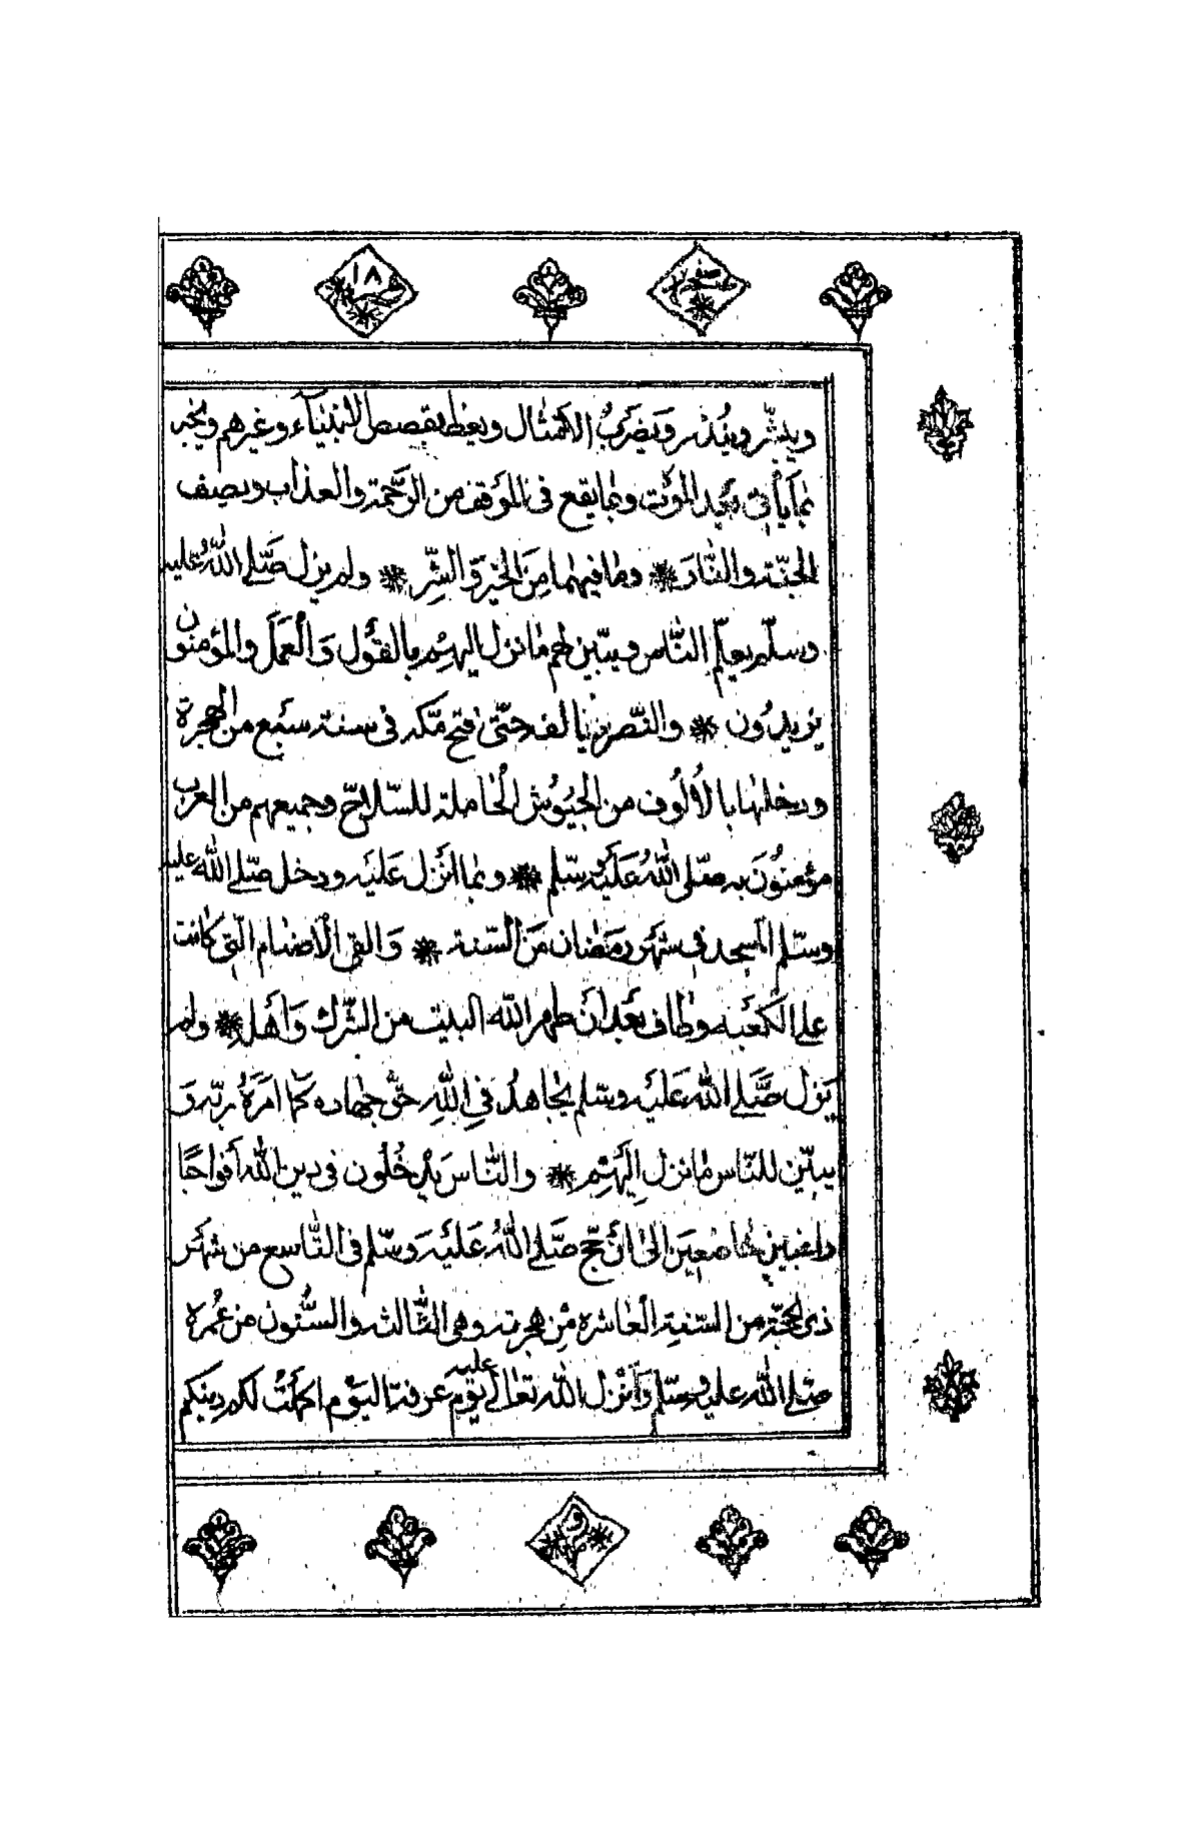 صفحه ١٨
ويبشّر وينُذر وَيَضربُ الاَمثال ويعظ بقصص الانبياء وغيرهم ويخبر
بمَا يَأتى بَعِد الموَت وبما يقع فى الموَقف من الرَّحمة والعذاب ويصف
الجنّة والنّارَ * وما فيهما مِنَ الخيْر وَالشِّر * ولم يزل صَلّے اللّٰهُ عليه
وسلّم يعلّم النّاس ويبّين لهم مٰا نزل اليهِمْ بالقوَْل وَالْعمَلَ والمؤمنون
يزيدُون * والنّصر يٰا لفه حتّى فتح مَكه فى سنة سَبع من الهجرة
ودخلهٰا بالْاُلُوف من الجيُوُش الْحٰاملة للسّلاحّ وجميعهم من العرب
مؤمنُوُنَ به صّلى اللّٰهُ عَلَيْه وسّلم * وبمٰا انْزل عَليَه ودخل صّلے اللّٰه عليه
وسّلم المسجد فى شهَر رمَضٰان مَن السّنة * وَالقى الْاَصْنٰام الّتى كٰانت
على الكَعْبَه وطٰاف بَعْد اَنْ طهر اللّٰه البيت من الشّرك وَاَهلِهِ * ولم
يَزل صَّلے اللّٰه عَليَه وسّلم يُجٰاهدُ فى اللّٰهِ حَقّ جهٰاده كَمٰا اَمَرَهُ ربّه وَ
يبيّن للنّاس مٰا نزل اِليَهِم * والنّاسَ يَدْخُلُون فى دين اللّٰه اَفواجًا
راغبين خٰاضعِيَن الىٰ اَنْ حجّ صَلّے اللّٰهُ عَليَه وَسّلم فى التّاسع من شهَر
ذى الحجّة من السّنةِ الْعٰاشره مْن هجرته وهى الثّالثه والستُّون من عُمره
صّلے اللّٰه عليه وسّلم وَاَنْزل اللّٰه تعٰالى عليه يَوْم عَرفة اليَوْم اكملْتُ لكم دينكم
و